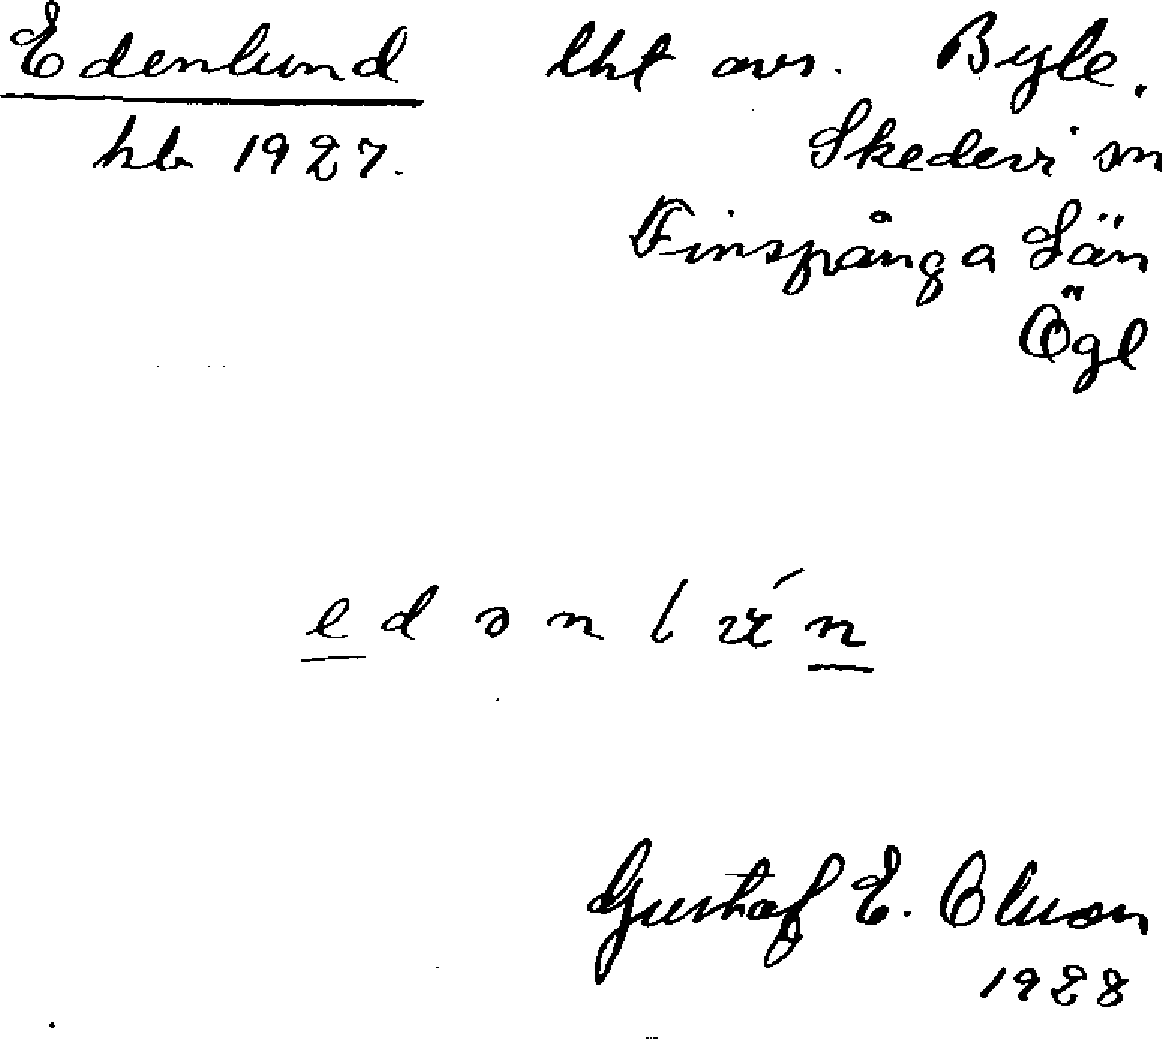 Edenlund lht avs. Byle.
hb 1927. Skedevi sn
Finspånga Län
Ögl
e d ə n l ú n
Gustaf E. Oluson
1928